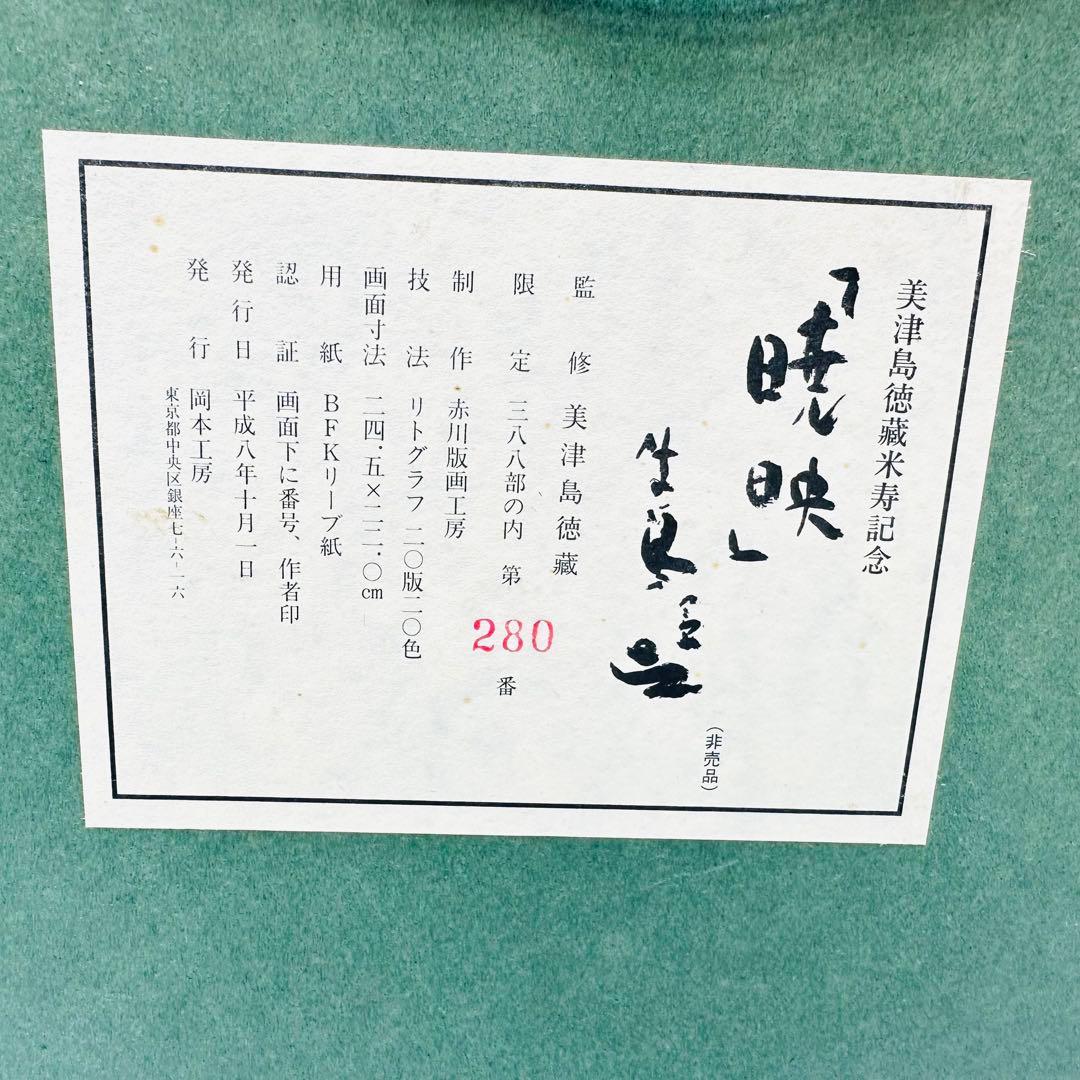 美津島徳藏米寿記念
「暁映」
(非売品)
監修 美津島徳藏
限定 三八八部の内 第280番
制作 赤川版画工房
技法 リトグラフ 二〇版二〇色
画面寸法 二四・五×二二・〇cm
用紙 BFKリーブ紙
認証 画面下に番号、作者印
発行日 平成八年十月一日
発行 岡本工房
東京都中央区銀座七-六-一六